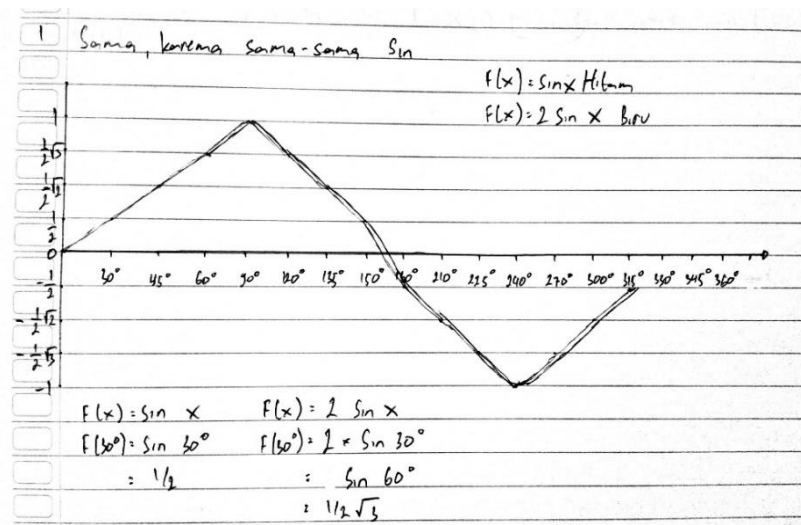 1 Sama, karena sama-sama Sin
F(x) = Sin x Hitam
F(x) = 2 Sin x Biru
1
1/2√3
1/2√2
1/2
0
30° 45° 60° 90° 120° 135° 150° 180° 210° 225° 240° 270° 300° 315° 330° 345° 360°
-1/2
-1/2√2
-1/2√3
-1
F(x) = Sin x F(x) = 2 Sin x
F(30°) = Sin 30° F(30°) = 2 × Sin 30°
= 1/2 = Sin 60°
= 1/2 √3